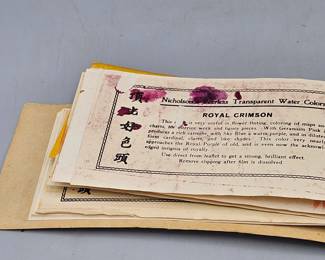 Nicholson's Peerless Transparent Water Colors
ROYAL CRIMSON
This is very useful in flower tinting, coloring of maps
charts, week and figure pieces. With Geranium Pink
produces a rich carmine, with Sky Blue a warm purple, and in
form cardinal, claret, and like shades. This color very nearly
approaches the Royal Purple of old, and is even now the
edged insignia of royalty.
Use direct from leaflet to get a strong, brilliant effect.
Remove clipping after film is dissolved.
頂
好
色
頭